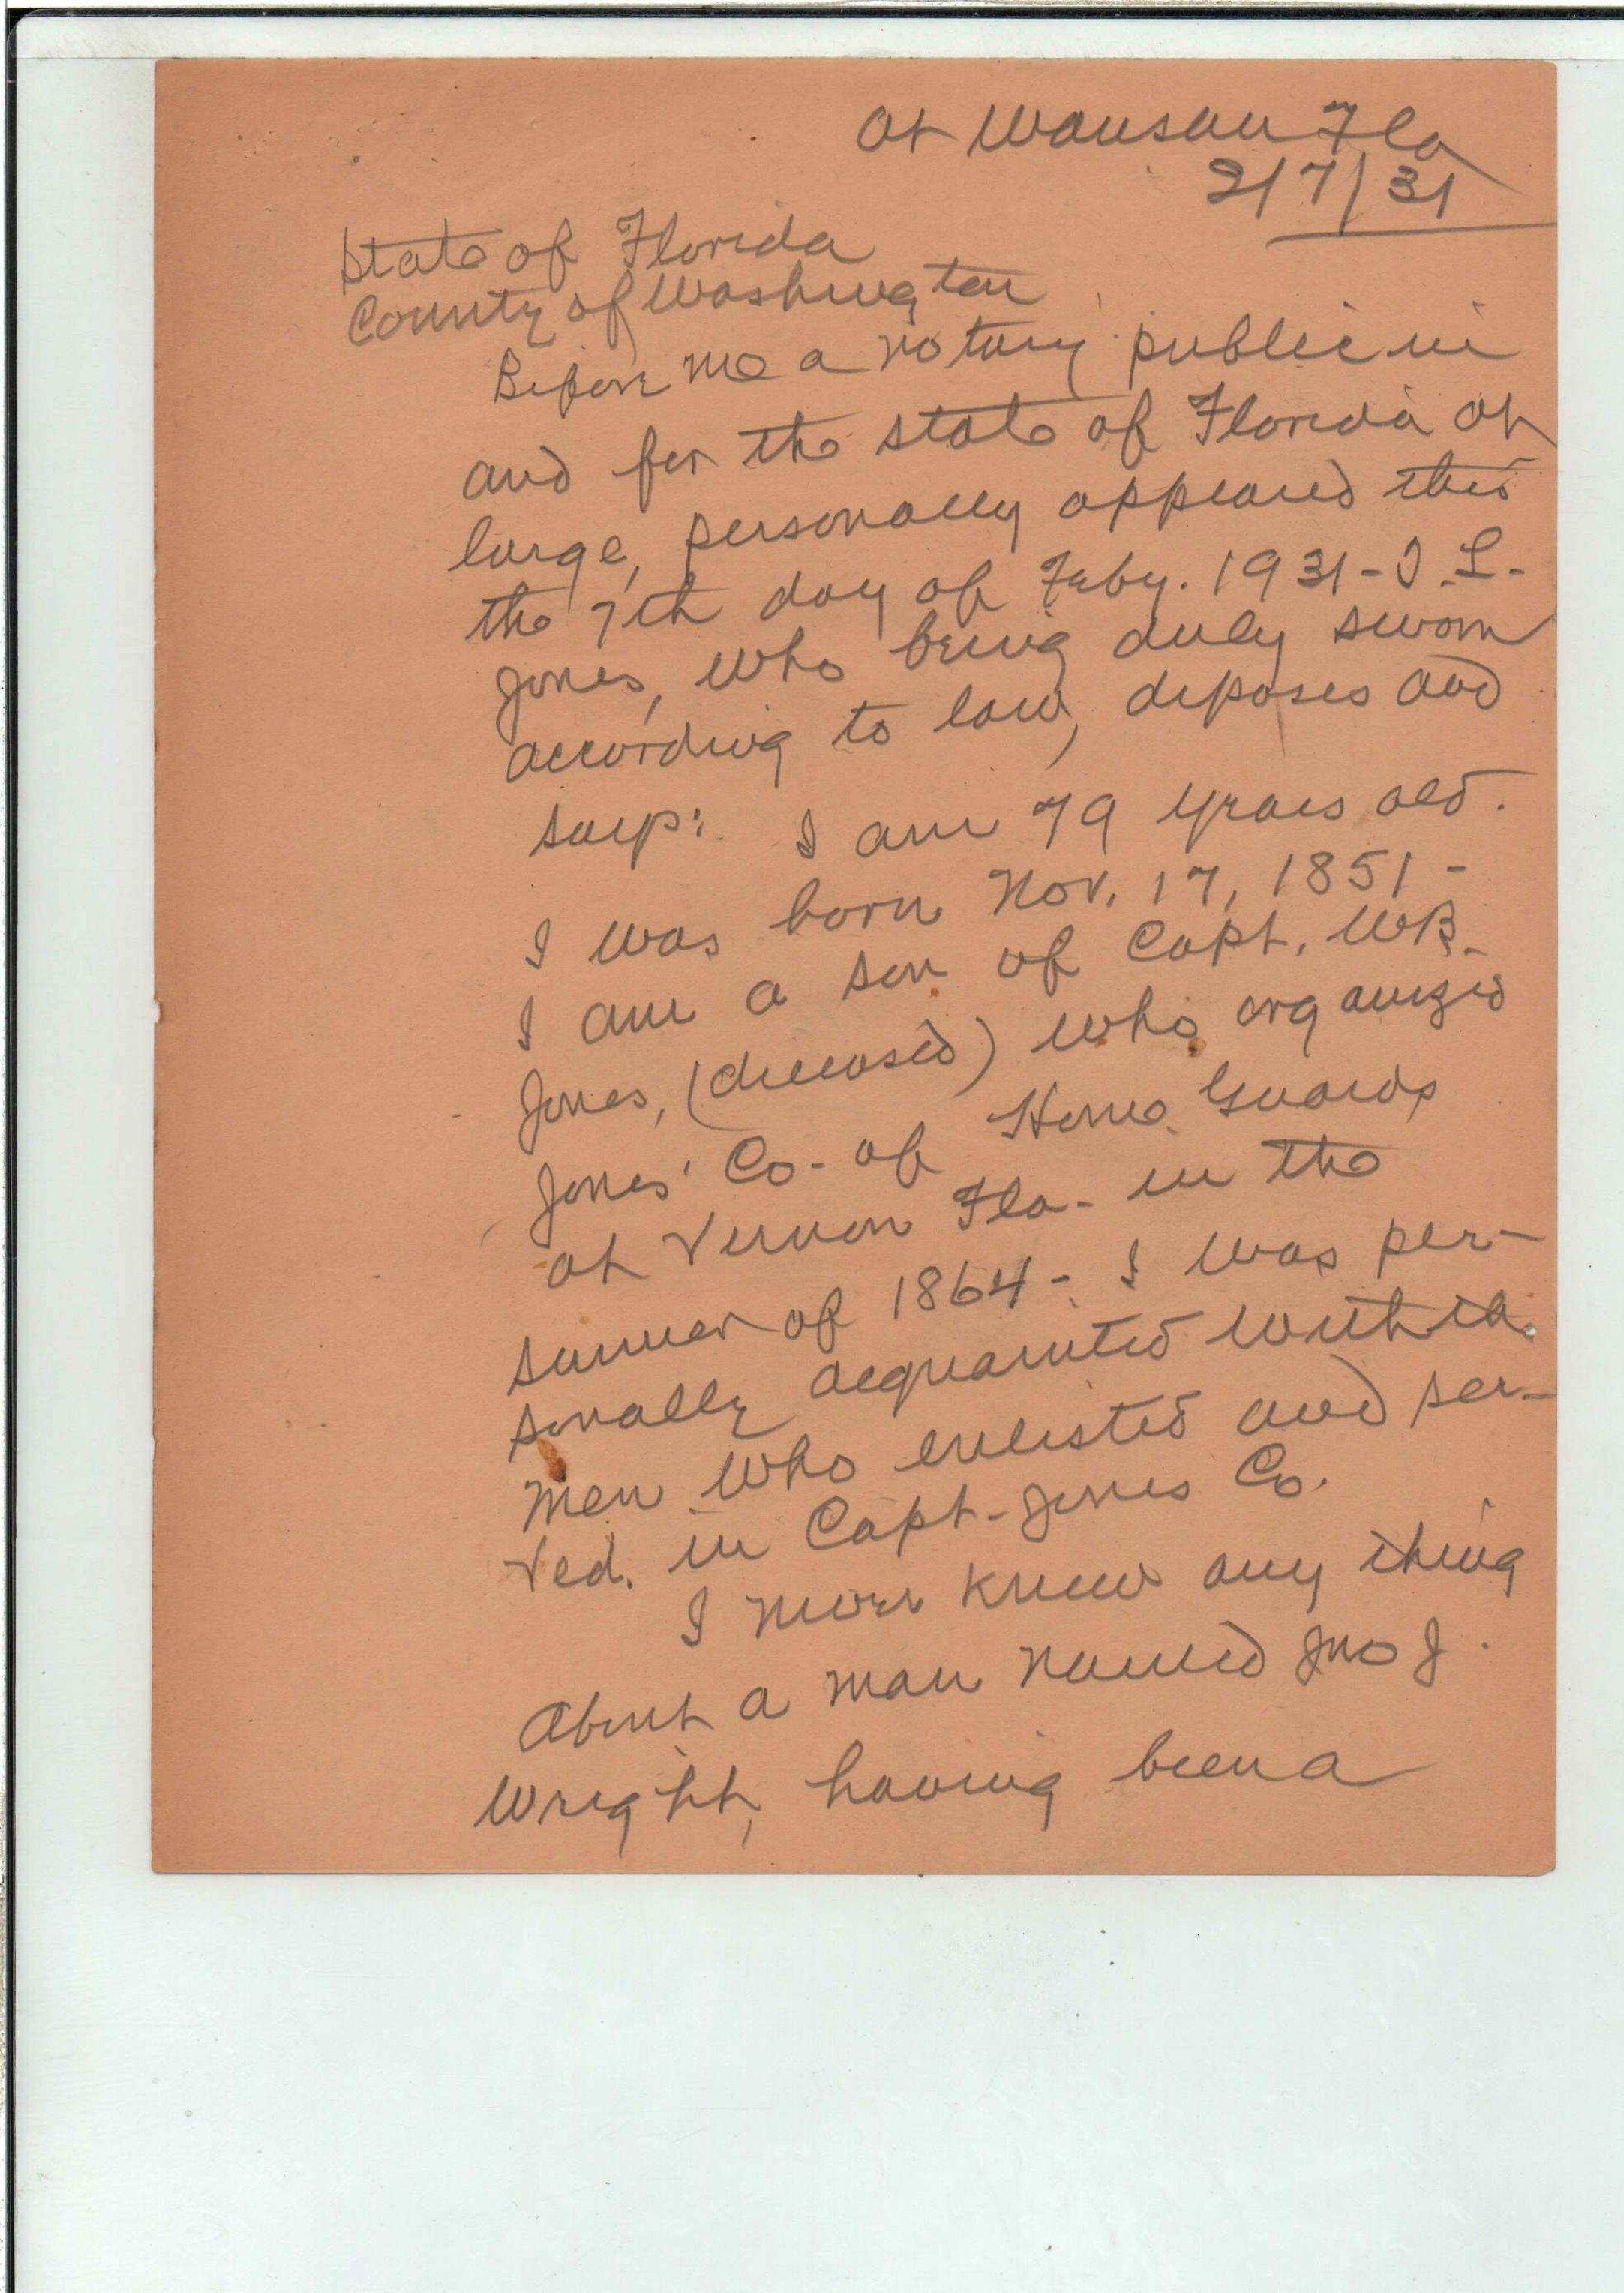 At Wausau Fla
2/7/31
State of Florida
County of Washington
Before me a notary public in
and for the state of Florida at
large, personally appeared this
the 7th day of Feby. 1931 - J. L.
Jones, who being duly sworn
according to law, deposes and
says: I am 79 years old.
I was born Nov. 17, 1851 -
I am a son of Capt. W B.
Jones, (deceased) who organized
Jones' Co - of Home Guards
at Vernon Fla - in the
summer of 1864 - I was per-
sonally acquainted with
men who enlisted and ser-
ved. in Capt - Jones Co.
I never knew any thing
About a man named Jno J.
Wright, having been a